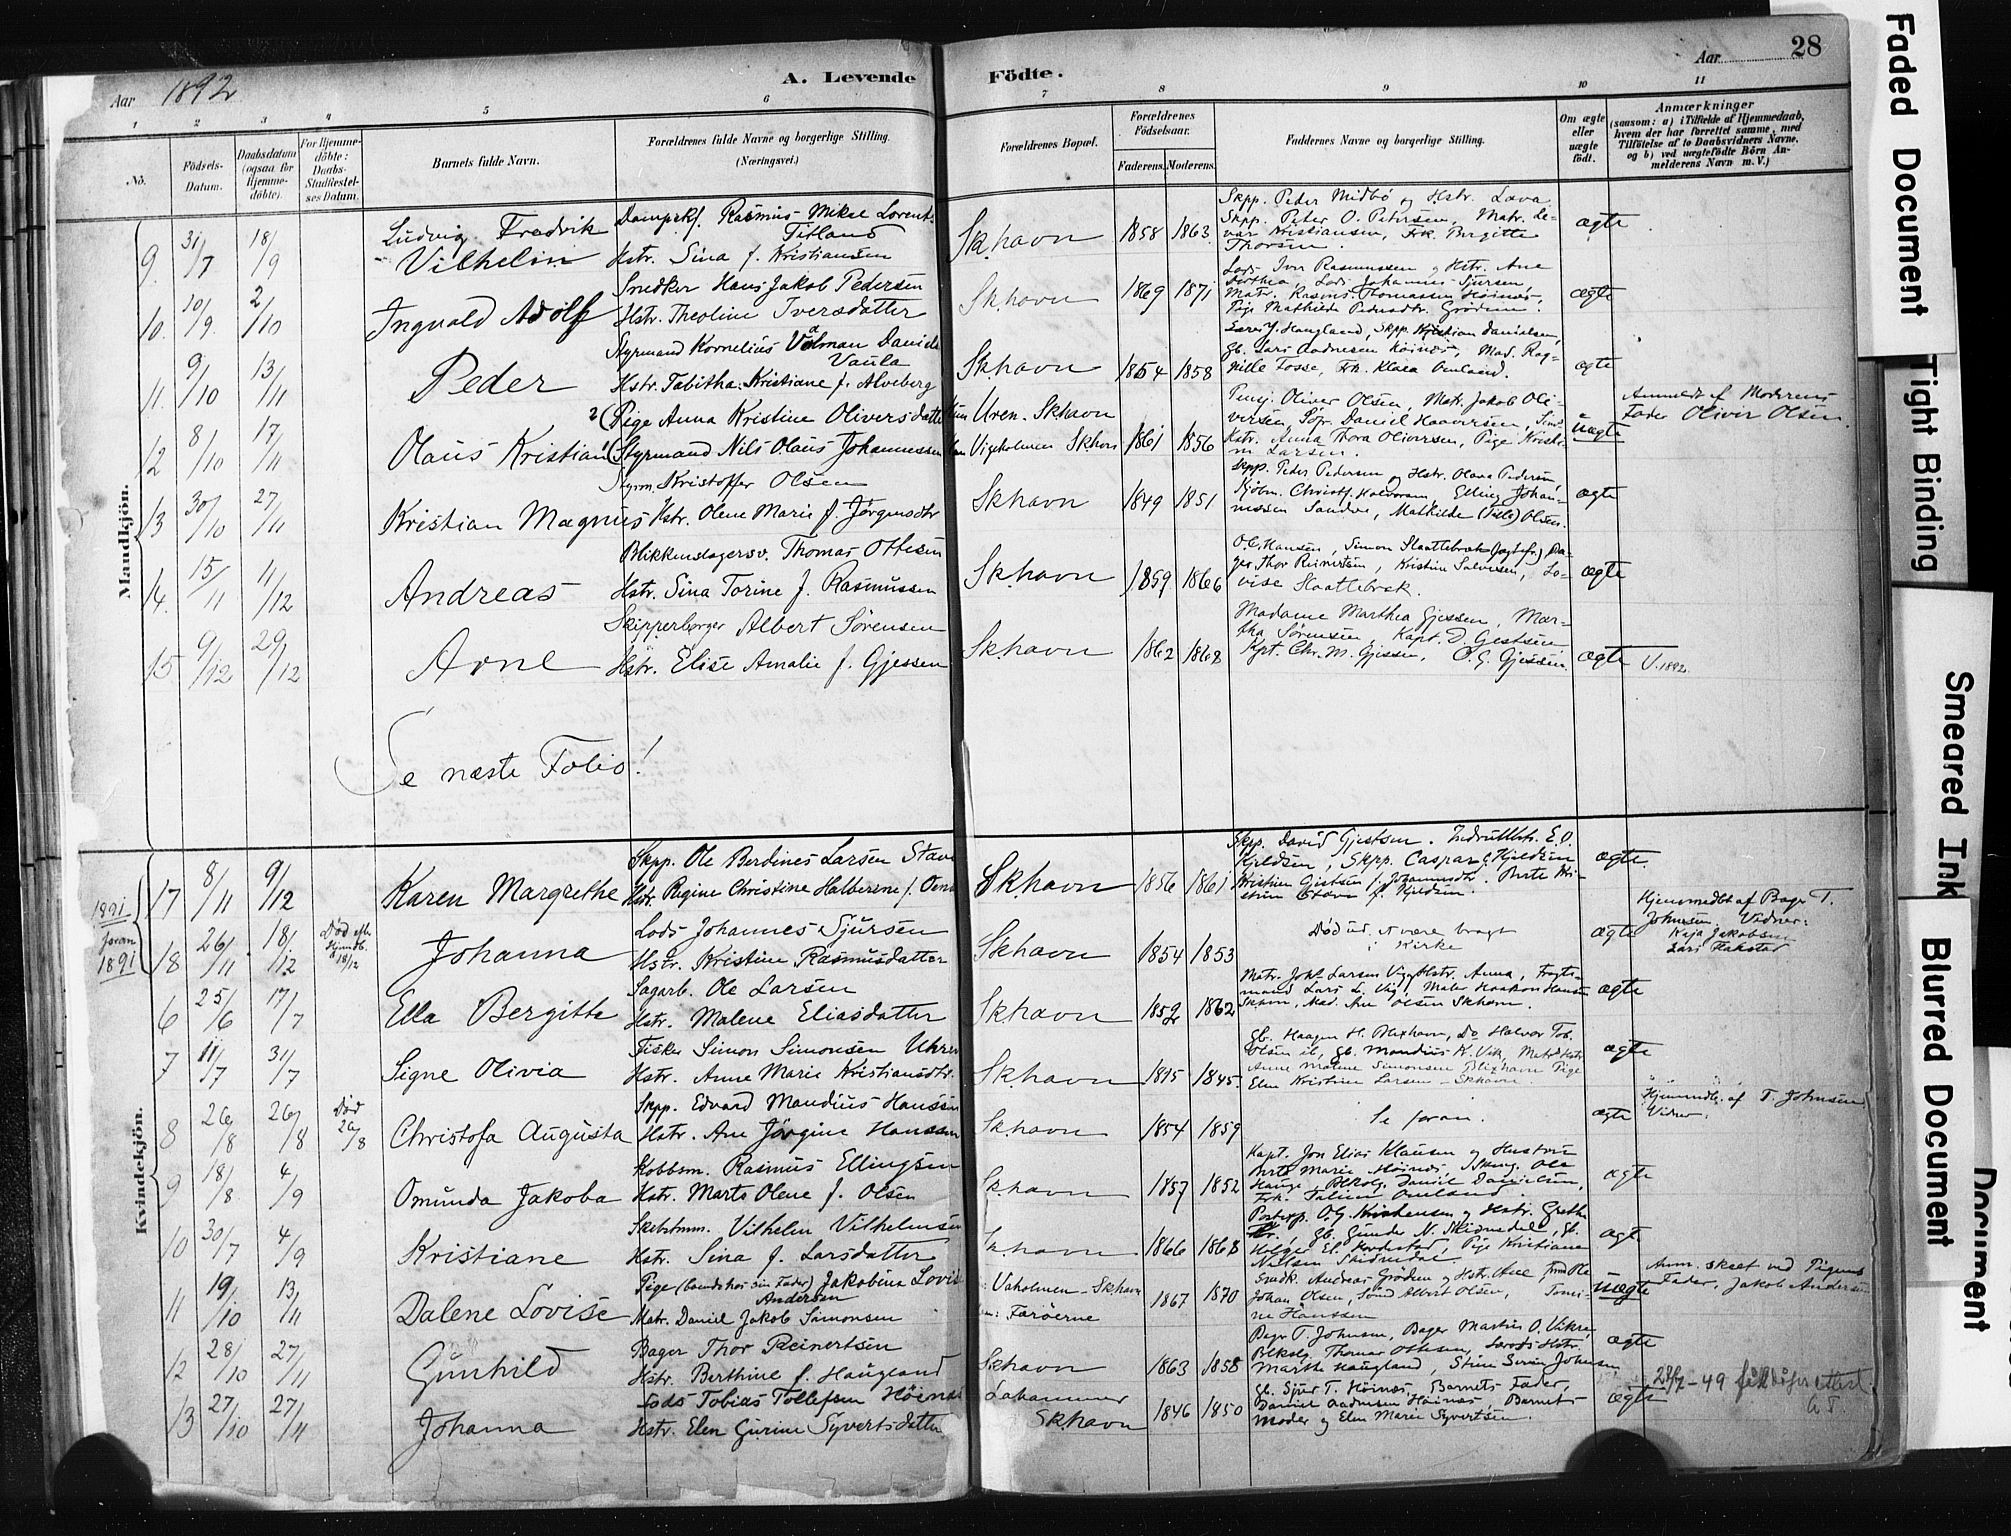 Aar 1892
A. Levende
Födte.
Aar
28
1 2 3 4 5 6 7 8 9 10 11
No.
Födsels-Datum.
Daabsdatum (ogsaa for Hjemme-döbte).
For Hjemme-döbte: Daabs-Stadfæstel-ses Datum.
Barnets fulde Navn.
Forældrenes fulde Navne og borgerlige Stilling.
(Næringsvei.)
Forældrenes Bopæl.
Forældrenes Födselsaar.
Faderens. Moderens.
Faddernes Navne og borgerlige Stilling.
Om ægte eller uægte födt.
Anmærkninger
(saasom: a) i Tilfælde af Hjemmedaab,
hvem der har forrettet samme, med
Tilföielse af to Daabsvidners Navne,
og b) ved uægtefödte Börn An-
melderens Navn m. V.)
Mandkjön.
9. 31/7 18/9 Ludvig Fredrik Vilhelm
Rasmus Mikal Lorents. Titland
Hstr. Sina f. Kristiansen
Skhavn 1858 1863
Skpp. Peder Midbö og Hstr. Lava
Skpp. Peter O. Petersen, Matr.
Kristiansen, Frk. Birgitte
Thorsen.
ægte
10. 10/9. 2/10 Ingvald Adolf
Snedker Hans Jakob Pedersen
Hstr. Theoline Iversdatter
Skhavn 1869 1871
Lods Iver Rasmussen og Hstr. Ane
Lods Johannes Sjursen
Matr. Rasmus Thomassen Höinæs,
Pige Mathilde Pedersdtr. Grödem.
ægte
11. 9/10 13/11 Peder
Styrmand Kornelius Valman Daniels. Vaula
Hstr. Tabitha Kristiane f. Alveberg
Skhavn 1854 1858
Haugland, Skpp. Kristian Danielsen,
Gb. Lars Aadnesen Höinæs, Mad. Rag-
nille Fosse, Frk. Klara Omland.
ægte
12 8/10 17/11 Olaus Kristian
2 (Pige Anna Kristine Oliversdatter
(Styrmand Nils Olaus Johannessen
Uren. Skhavn
Vigeholmen Skhavn 1861 1856
Oliver Olsen, Matr. Jakob Oli-
versen, Daniel Haaversen,
Hstr. Anna Thora Oliversen, Pige Kristi-
Larsen.
uægte
Anmeldt af Moderens
Fader Oliver Olsen
13 30/10 27/11 Kristian Magnus
Styrm. Kristoffer Olsen
Hstr. Olene Marie f. Jörgensdtr
Skhavn 1849 1851
Skpp. Peder Pedersen og Hstr. Olava Pedersen,
Kjöbm. Christf. Halvorsen, Elling Johan-
nessen Sandve, Mathilde Olsen.
ægte
14. 15/11 11/12 Andreas
Blikkenslagersv. Thomas Ottesen
Hstr. Sina Torine f. Rasmussen
Skhavn 1859 1866
O. C. Hansen, Simon Slaattebræk
Thor Reinertsen, Kristine Salvesen, Lo-
vise Slaattebræk.
ægte
15 9/12 29/12 Arne
Skipperborger Albert Sörensen
Hstr. Elise Amalie f. Gjessen
Skhavn 1862 1868
Madame Marthea Gjessen, Mar-
tha Sörensen, Kapt. D. Gjestsen
Kpt. Chr. M. Gjessen, O. G. Gjessen.
ægte V. 1892.
Se næste Folio!
Kvindekjön.
1891
foran
1891
17 8/11 9/12 Karen Margrethe
Skpp. Ole Berdines Larsen Stava
Hstr. Regine Christine Halberine f.
Skhavn 1856 1861
Skpp. David Gjestsen. E. O.
Kjeldsen, Skpp. Caspar Kjeldsen
Kristine Gjestsen f. Johannesdtr. Berte Kri-
stine Stava f. Kjeldsen.
ægte
18 26/11 18/12 Död eft. Hjemdb. 18/12 Johanna
Lods Johannes Sjursen
Hstr. Kristine Rasmusdatter
Skhavn 1854 1853
Död ud. at være bragt
i Kirke
ægte
Hjemmedöbt af Bager T.
Johnsen. Vidner:
Kaja Jakobsen
Lars Flakstad
6 25/6 17/7 Ella Bergitte
Sagarb. Ole Larsen
Hstr. Malene Eliasdatter
Skhavn 1852 1862
Matr. Larsen Vig, Hstr. Anna,
Lars L. Vig, Maler Haakon Hansen
Skhavn, Mad. Ane Olsen Skhavn.
ægte
7 11/7 31/7 Signe Olivia
Fisker Simon Simonsen Uhren
Hstr. Anne Marie Kristiansdtr.
Skhavn 1845.
Gb. Haagen H. Blixhavn, Do Halvor Tob.
Olsen ib, Gb. Mandius K. Vik,
Anne Malene Simonsen Blixhavn Pige
Elen Kristine Larsen - Skhavn
ægte
8 26/8 26/8 Död 26/8 Christofa Augusta
Skpp. Edvard Mandius Hansen
Hstr. Ane Jörgine Hanssen
Skhavn 1854 1859
Se foran.
ægte
Hjemmdb. af T. Johnsen
Vidner.
9 18/8. 4/9 Omunda Jakoba
Kobbsm. Rasmus Ellingsen
Hstr. Marta Olene f. Olsen
Skhavn 1857 1852
Kapt. Jon Elias Klausen og Hustru
Berte Marie Höinæs, Ole
Hauge, Daniel Danielsen,
Frk. Omland.
ægte
10 30/7 4/9 Kristiane
Skibstmm. Vilhelm Vilhelmsen
Hstr. Sina f. Larsdatter
Skhavn 1866 1868
O. G. Kristensen og Hstr. Grethe
Gb. Gunder N. Skidmedal, Gb.
Holger El. Pige Kristiane
Nilsen Skidmedal
ægt
11 19/10 13/11 Dalene Lovise
Pige (bands hos sin Fader) Jakobine Lovise Andersen
Matr. Daniel Jakob Simonsen
Vaholmen - Skhavn
Færöerne 1867 1870
Snedk. Andreas Grödem og Hstr. Ane
Johan Olsen, Albert Olsen, Tomi-
ne Hanssen
uægte
Anm. skeet ved Pigens
Fader, Jakob Andersen
12 28/10 27/11 Gunhild
Bager Thor Reinertsen
Hstr. Berthine f. Haugland
Skhavn 1863 1858
Bager T. Johnsen, Bager Martin O. Vikre,
Thomas Ottesen,
Marthe Haugland, Stine Johnsen
ægte
13 27/10 27/11 Johanna
Lods Tobias Tollefsen Höinæs
Hstr. Elen Gurine Syvertsdatter
Lahammer
Skhavn 1846 1850
Gb. Sjur T. Höinæs, Barnets Fader,
Daniel Aadnesen Höinæs, Barnets
Moder og Elen Marie Syvertsen.
ægte
Faded Document
Tight Binding
Smeared Ink
Blurred Document
Document